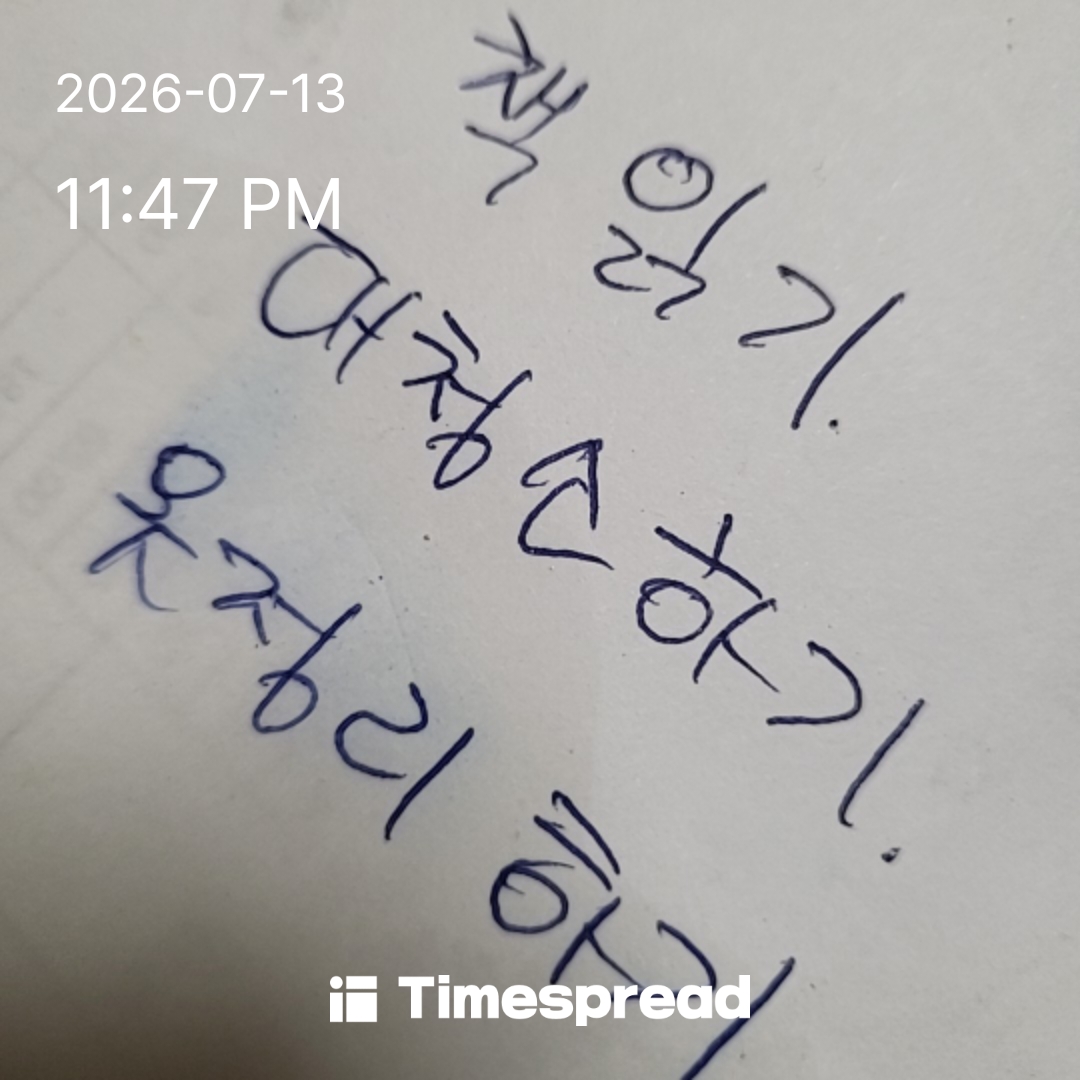 2026-07-13
11:47 PM
책 읽기.
대청소하기.
옷정리 하기
Timespread